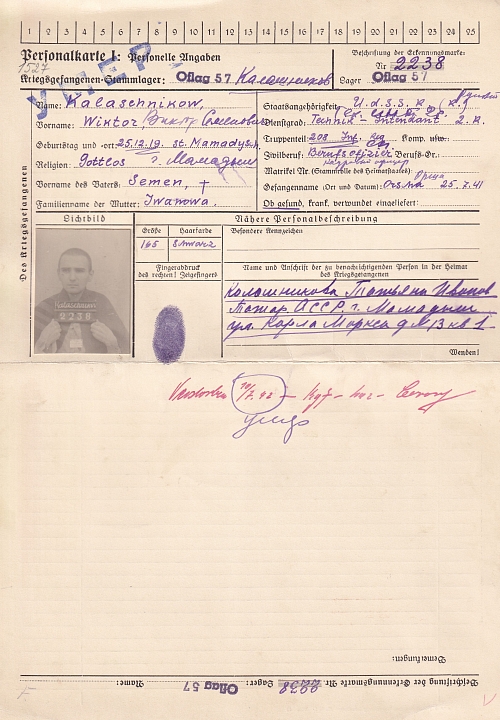 1 2 3 4 5 6 7 8 9 10 11 12 13 14 15 16 17 18 19 20 21 22 23 24 25
Personalkarte I: Personelle Angaben
Kriegsgefangenen-Stammlager: Oflag 57 Калашников
Beschriftung der Erkennungsmarke:
Nr. 2238
Lager Oflag 57
1527
УМЕР
Des Kriegsgefangenen
Name: Kalaschnikow,
Vorname: Wiktor Виктор Семенович
Geburtstag und -ort: 25.12.19. st. Mamadysch
Religion: Gottlos г. Мамадыш
Vorname des Vaters: Semen, +
Familienname der Mutter: Iwanowa.
Staatsangehörigkeit: U.d.S.S.R. (R.)
Dienstgrad: Technik-Intendant 2. R.
Truppenteil: 208 Inf. Komp. usw.:
Zivilberuf: Berufsoffizier Berufs-Gr.:
Matrikel Nr. (Stammrolle des Heimatstaates)
Gefangenname (Ort und Datum): Orscha 25.7.41
Орша
Ob gesund, krank, verwundet eingeliefert:
Lichtbild
Nähere Personalbeschreibung
Größe Haarfarbe Besondere Kennzeichen
165 Schwarz
Fingerabdruck
des rechten! Zeigefingers
Name und Anschrift der zu benachrichtigenden Person in der Heimat
des Kriegsgefangenen
Kalaschnikow
2238
Калашникова Татьяна Иванов
Татар АССР, г. Мамадыш
ул. Карла Маркса д № 13 кв 1
Wenden!
умер
Bemerkungen:
Beschriftung der Erkennungsmarke Nr. 2238 Lager: Oflag 57 Name: